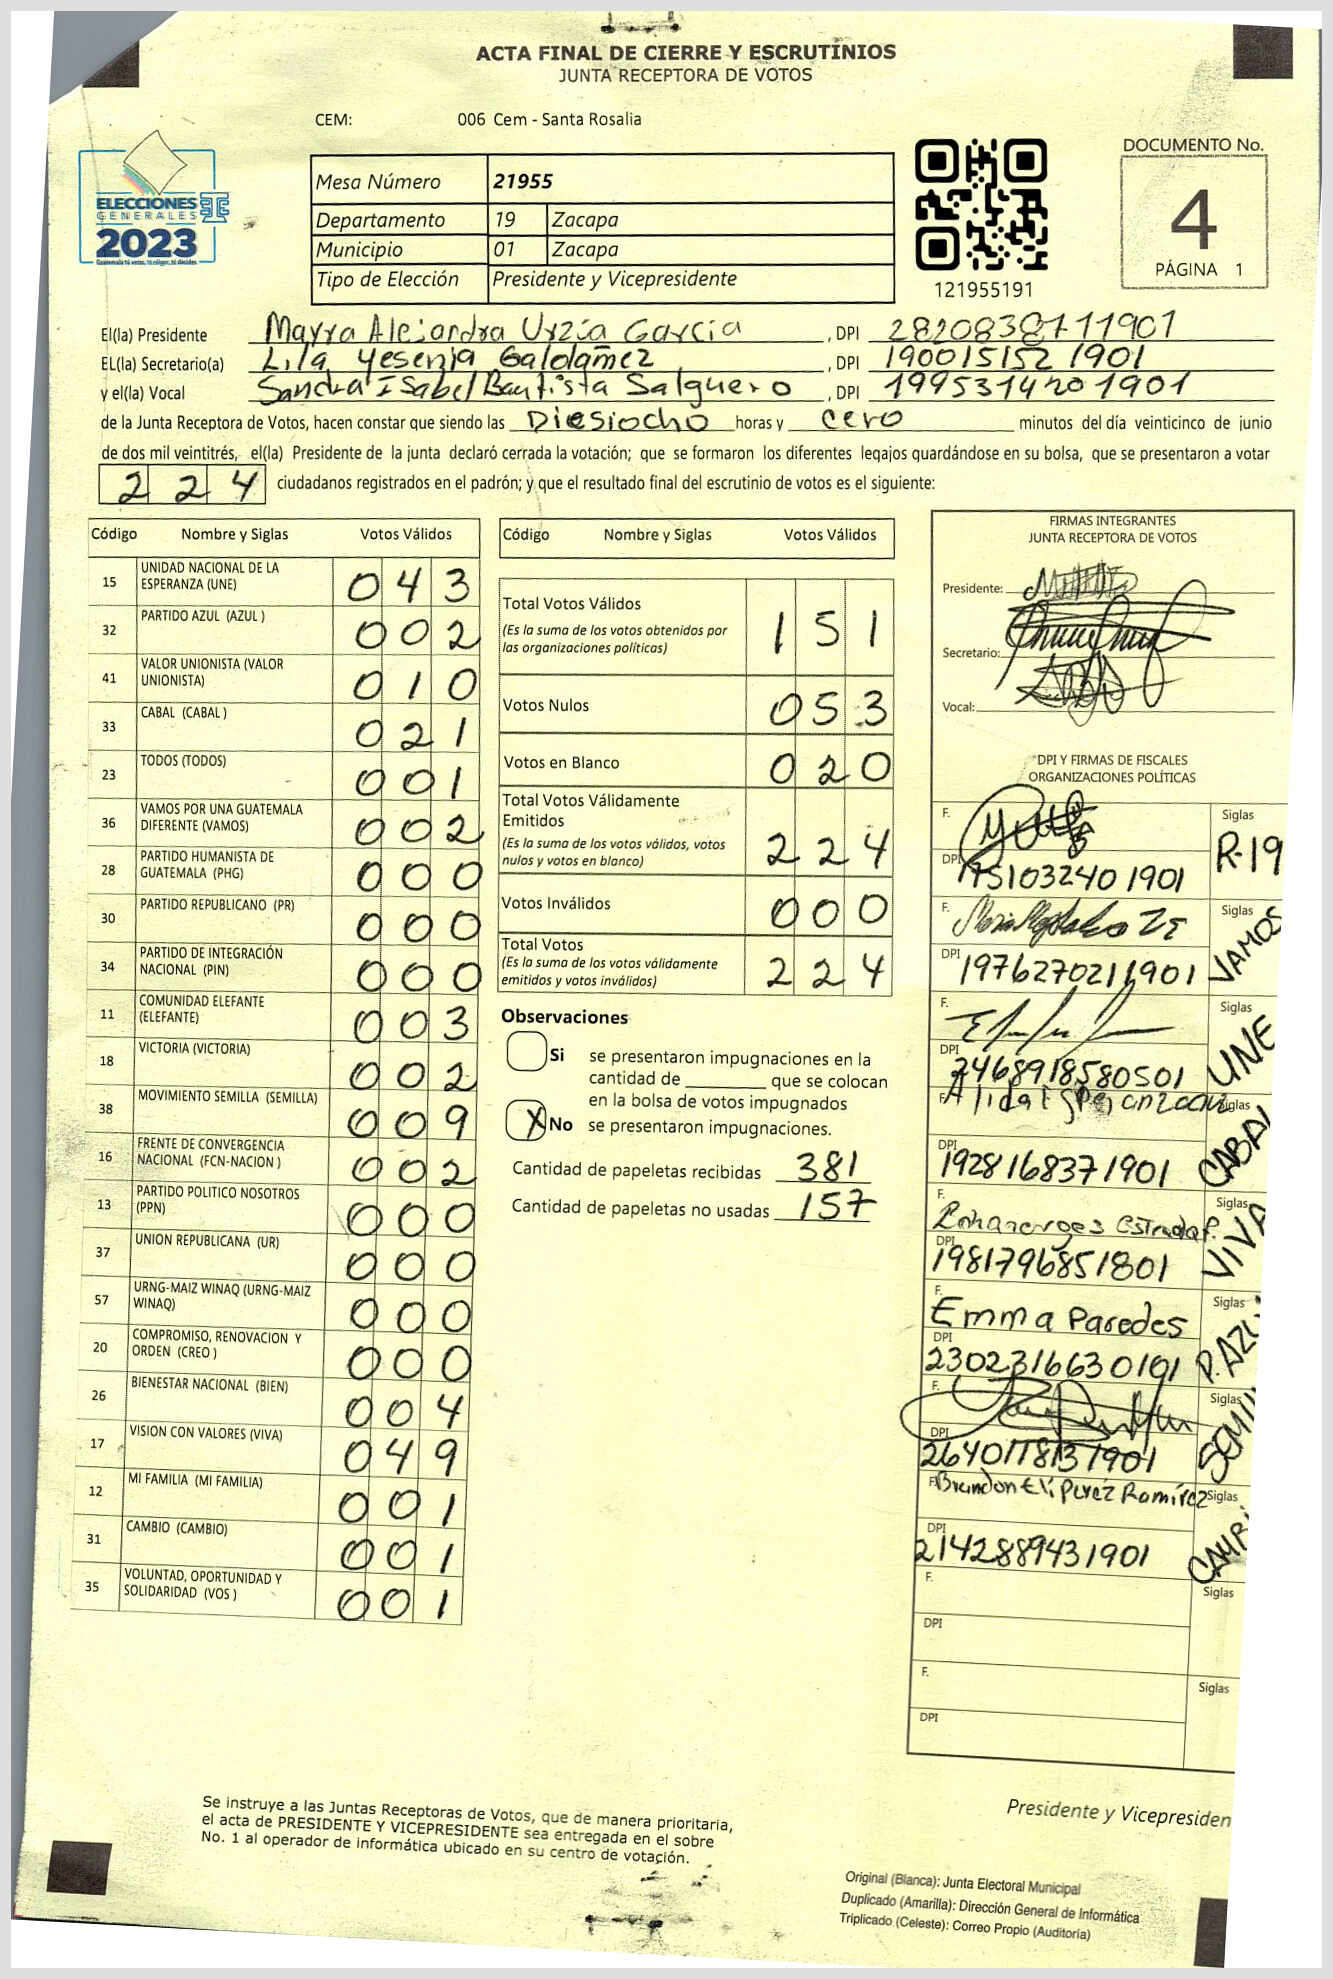 ACTA FINAL DE CIERRE Y ESCRUTINIOS
JUNTA RECEPTORA DE VOTOS
CEM: 006 Cem - Santa Rosalia
ELECCIONES
GENERALES
2023
Mesa Número 21955
Departamento 19 Zacapa
Municipio 01 Zacapa
Tipo de Elección Presidente y Vicepresidente
121955191
DOCUMENTO No.
4
PÁGINA 1
El(la) Presidente Mayra Alejandra Urzúa García, DPI 2820838711901
EL(la) Secretario(a) Lila Yesenia Galdámez, DPI 190015152 1901
y el(la) Vocal Sandra Isabel Bautista Salguero, DPI 199531420 1901
de la Junta Receptora de Votos, hacen constar que siendo las Diesiocho horas y cero minutos del día veinticinco de junio
de dos mil veintitrés, el(la) Presidente de la junta declaró cerrada la votación; que se formaron los diferentes legajos guardándose en su bolsa, que se presentaron a votar
224 ciudadanos registrados en el padrón; y que el resultado final del escrutinio de votos es el siguiente:
Código Nombre y Siglas Votos Válidos
15 UNIDAD NACIONAL DE LA
ESPERANZA (UNE) 043
32 PARTIDO AZUL (AZUL ) 002
41 VALOR UNIONISTA (VALOR
UNIONISTA) 010
33 CABAL (CABAL ) 021
23 TODOS (TODOS) 001
36 VAMOS POR UNA GUATEMALA
DIFERENTE (VAMOS) 002
28 PARTIDO HUMANISTA DE
GUATEMALA (PHG) 000
30 PARTIDO REPUBLICANO (PR) 000
34 PARTIDO DE INTEGRACIÓN
NACIONAL (PIN) 000
11 COMUNIDAD ELEFANTE
(ELEFANTE) 003
18 VICTORIA (VICTORIA) 002
38 MOVIMIENTO SEMILLA (SEMILLA) 009
16 FRENTE DE CONVERGENCIA
NACIONAL (FCN-NACION ) 002
13 PARTIDO POLITICO NOSOTROS
(PPN) 000
37 UNION REPUBLICANA (UR) 000
57 URNG-MAIZ WINAQ (URNG-MAIZ
WINAQ) 000
20 COMPROMISO, RENOVACION Y
ORDEN (CREO ) 000
26 BIENESTAR NACIONAL (BIEN) 004
17 VISION CON VALORES (VIVA) 049
12 MI FAMILIA (MI FAMILIA) 001
31 CAMBIO (CAMBIO) 001
35 VOLUNTAD, OPORTUNIDAD Y
SOLIDARIDAD (VOS ) 001
Código Nombre y Siglas Votos Válidos
Total Votos Válidos
(Es la suma de los votos obtenidos por
las organizaciones políticas) 151
Votos Nulos 053
Votos en Blanco 020
Total Votos Válidamente
Emitidos
(Es la suma de los votos válidos, votos
nulos y votos en blanco) 224
Votos Inválidos 000
Total Votos
(Es la suma de los votos válidamente
emitidos y votos inválidos) 224
Observaciones
Si se presentaron impugnaciones en la
cantidad de ________ que se colocan
en la bolsa de votos impugnados
X No se presentaron impugnaciones.
Cantidad de papeletas recibidas 381
Cantidad de papeletas no usadas 157
FIRMAS INTEGRANTES
JUNTA RECEPTORA DE VOTOS
Presidente:
Secretario:
Vocal:
DPI Y FIRMAS DE FISCALES
ORGANIZACIONES POLÍTICAS
F. Siglas R-19
DPI 175103240 1901
F. Siglas VAMOS
DPI 1976270211901
F. Siglas UNE
DPI 2468918580501
F. Siglas CABAL
DPI 1928168371901
F. Siglas VIVA
DPI 1981796851801
F. Emma Paredes Siglas P. AZU
DPI 2302316630101
F. Siglas SEMI
DPI 2640178131901
F. Brandon Eli Perez Ramírez Siglas
DPI 2142889431901
F. Siglas
DPI
F. Siglas
DPI
Se instruye a las Juntas Receptoras de Votos, que de manera prioritaria,
el acta de PRESIDENTE Y VICEPRESIDENTE sea entregada en el sobre
No. 1 al operador de informática ubicado en su centro de votación.
Presidente y Vicepresiden
Original (Blanca): Junta Electoral Municipal
Duplicado (Amarilla): Dirección General de Informática
Triplicado (Celeste): Correo Propio (Auditoría)